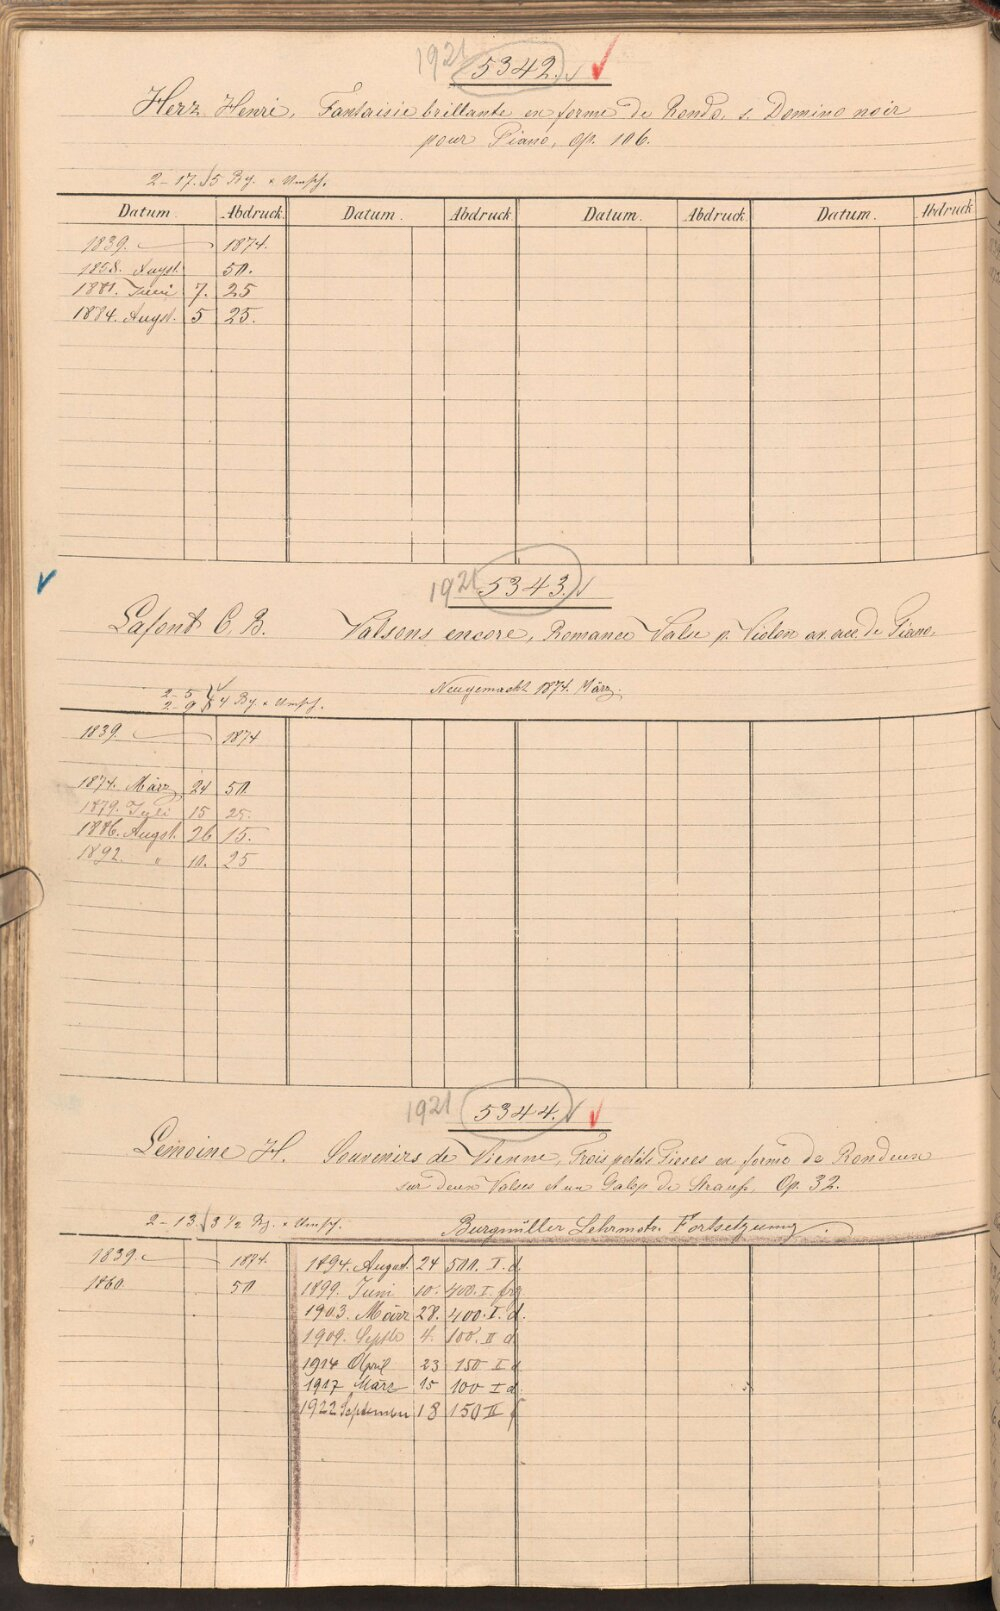 1921 5342.
Herz Henri, Fantaisie brillante en forme de Rondo, s. Domino noir
pour Piano, Op. 106.
2-17. 15 Bg. x Umsch.
Datum. Abdruck Datum. Abdruck Datum. Abdruck Datum. Abdruck
1839. 1874.
1858. Augst. 50.
1881. Juni 7. 25
1884. Augst. 5 25.
1921 5343.
Lafont C. B. Valsons encore, Romance Valse p. Violon av. acc. de Piano.
Neugemacht 1874. März.
2-5
2-9 4 Bg. x Umsch.
1839. 1874
1874. März 24 50
1879. Juli 15 25.
1886. Augst. 26 15.
1892. " 10. 25
1921 5344.
Lemoine H. Souvenirs de Vienne, Trois petits Pieces en forme de Rondeaux
sur deux Valses et un Galop de Strauss, Op. 32.
2-13 3 1/2 Bg. x Umsch. Burgmüller Fortsetzung.
1839. 1874. 1894. August. 24 500. I. d.
1860. 50 1899. Juni 10. 400. I.
1903. März 28. 400. I. d.
1909. Septb 4. 100. II d
1914 April 23 150 I d
1917 März 15 100 I d.
1922 September 18 150 II f